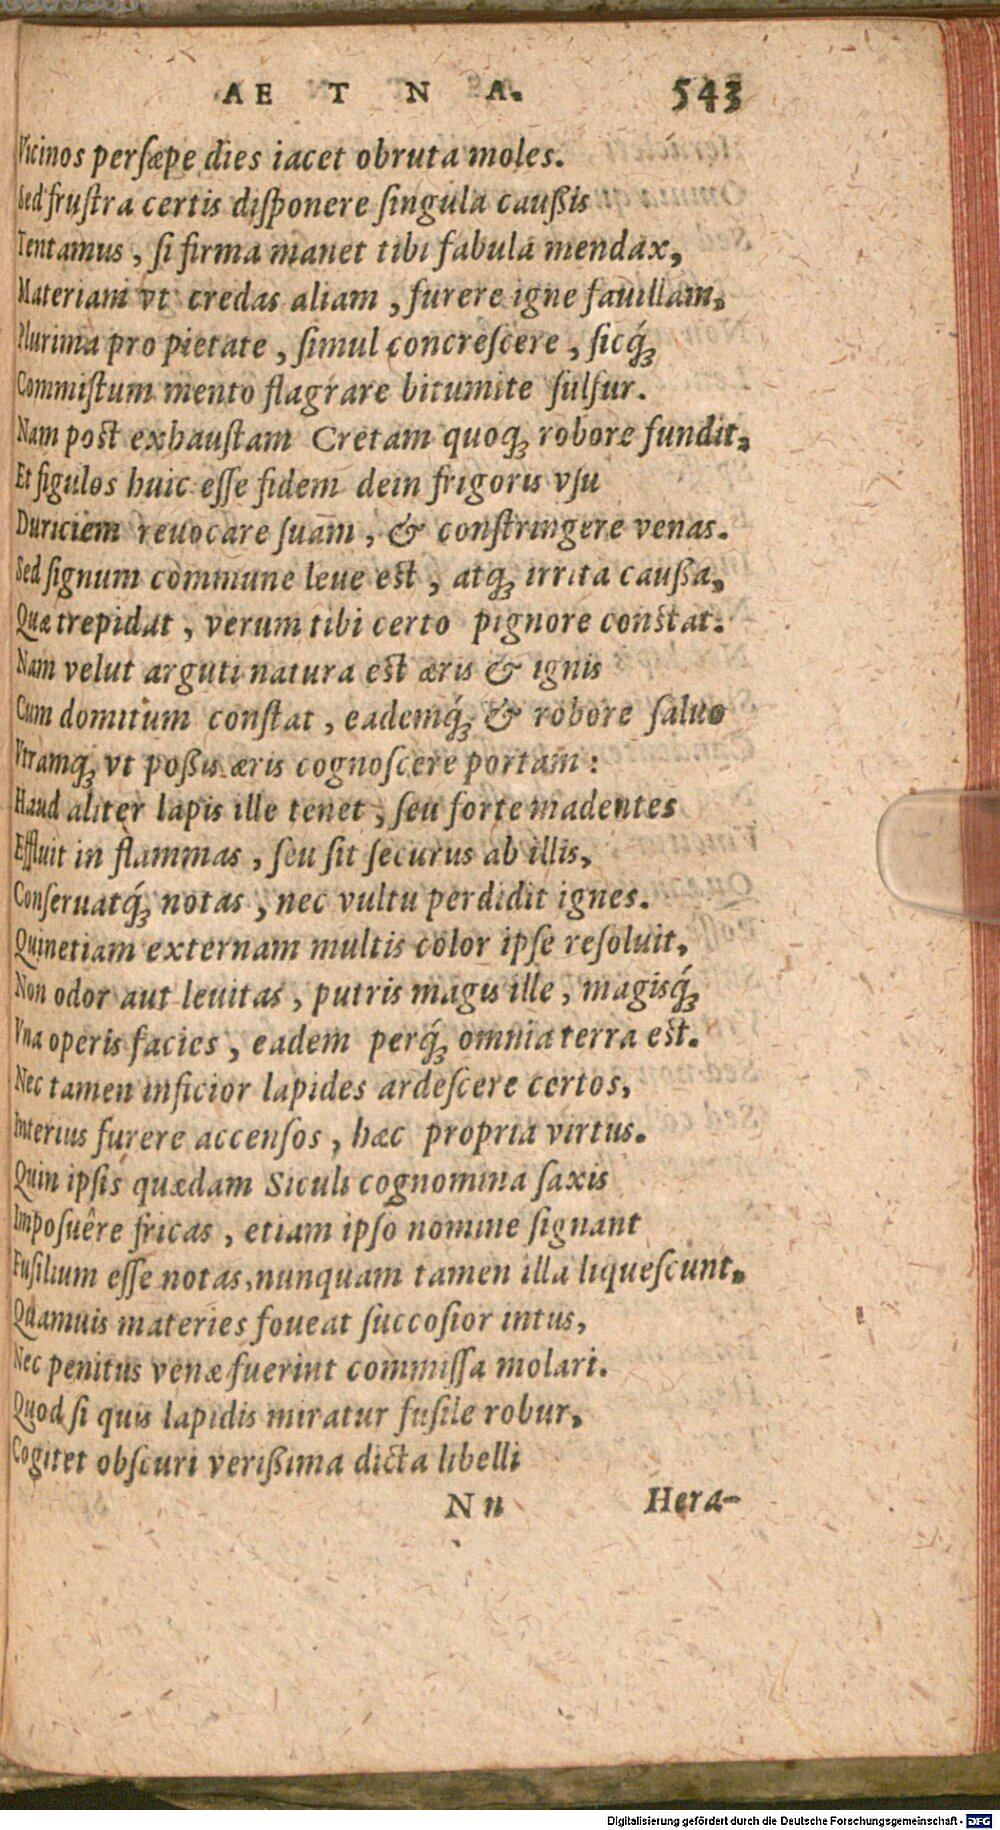 AE T N A. 543
Vicinos persæpe dies iacet obruta moles.
Sed frustra certis disponere singula caußis
Tentamus, si firma manet tibi fabula mendax,
Materiam vt credas aliam, furere igne fauillam,
Plurima pro pietate, simul concrescere, sicq́;
Commistum mento flagrare bitumite sulfur.
Nam post exhaustam Cretam quoq; robore fundit,
Et figulos huic esse fidem dein frigoris vsu
Duriciem reuocare suam, & constringere venas.
Sed signum commune leue est, atq; irrita caußa,
Quæ trepidat, verum tibi certo pignore constat.
Nam velut arguti natura est æris & ignis
Cum domitum constat, eademq́; & robore saluo
Vtramq; vt poßis æris cognoscere portam:
Haud aliter lapis ille tenet, seu forte madentes
Effluit in flammas, seu sit securus ab illis,
Conseruatq́; notas, nec vultu perdidit ignes.
Quinetiam externam multis color ipse resoluit,
Non odor aut leuitas, putris magis ille, magisq́;
Vna operis facies, eadem perq́; omnia terra est.
Nec tamen inficior lapides ardescere certos,
Interius furere accensos, hæc propria virtus.
Quin ipsis quædam Siculi cognomina saxis
Imposuêre fricas, etiam ipso nomine signant
Fusilium esse notas, nunquam tamen illa liquescunt,
Quamuis materies foueat succosior intus,
Nec penitus venæ fuerint commissa molari.
Quod si quis lapidis miratur fusile robur,
Cogitet obscuri verißima dicta libelli
N n Hera-
Digitalisierung gefördert durch die Deutsche Forschungsgemeinschaft - DFG